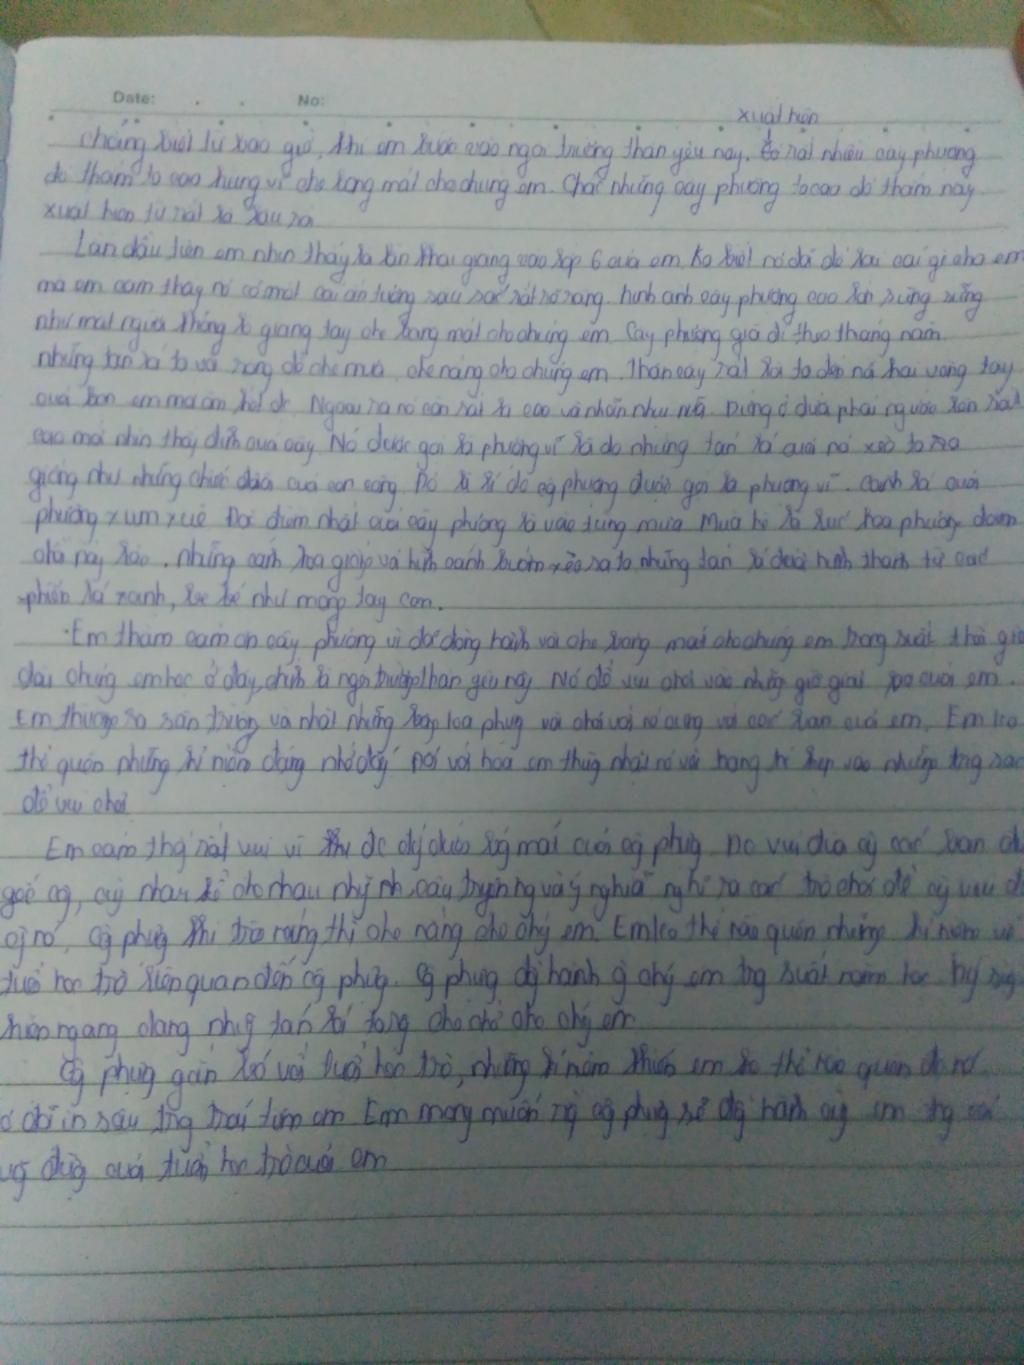 Date: No:
xuất hiện
Chẳng biết từ bao giờ, khi em bước vào ngôi trường thân yêu này. Có rất nhiều cây phượng
đỏ thắm to cao hùng vĩ che bóng mát cho chúng em. Chắc những cây phượng to cao đỏ thắm này
xuất hiện từ rất là lâu rồi
Lần đầu tiên em nhìn thấy là lần khai giảng vào lớp 6 của em. Ko biết nó đã để lại cái gì cho em
mà em cảm thấy nó có một cái ấn tượng sâu sắc rất rõ ràng. hình ảnh cây phượng cao lớn sừng sững
như một người khổng lồ giang tay che bóng mát cho chúng em. Cây phượng già đi theo tháng năm
những tán lá to và rộng để che mưa, che nắng cho chúng em. Thân cây rất là to đến nỗ hai vòng tay
của bọn em mà ôm hết đc Ngoài ra nó còn rất là cao và nhẵn như nữa. Đứng ở dưới phải ngước lên rất
cao mới nhìn thấy đỉnh của cây Nó được gọi là phượng vĩ là do những tán lá của nó xoè to tròn
giống như những chiếc đuôi của con công. Đó là lí do cây phượng được gọi là phượng vĩ. cành lá của
phượng xum xuê Đặc điểm nhất của cây phượng là vào từng mùa Mùa hè là lúc hoa phượng đơm
chồi nảy lộc. những cánh hoa giống với hình cánh bướm xoè ra to những tán lá được hình thành từ các
phiến lá xanh, be bé như móng tay con.
Em thầm cảm ơn cây phượng vì đã đồng hành và che bóng mát cho chúng em trong suốt thời gian
dài chúng em học ở đây, chính là ngôi trường thân yêu này Nó để vui chơi vào những giờ giải lao của em.
Em thường ra sân trường và nhặt những bông hoa phượng và chơi với nó cùng với các bạn của em. Em ko
thể quên những kỉ niệm đáng nhớ đấy đối với hoa em thường nhặt nó và trang trí đẹp vào những trang sách
để vui chơi
Em cảm thấy rất vui vì khi đc đứng dưới bóng mát của cây phượng. nô vui đùa cùng các bạn dưới
gốc cây, cùng nhau kể cho nhau những câu truyện và ý nghĩa nghĩ ra các trò chơi để cùng vui đùa
cùng nó. Cây phượng khi trời nắng thì che nắng cho chúng em. Em ko thể nào quên những kỉ niệm về
tuổi học trò liên quan đến cây phượng. Cây phượng đồng hành cùng chúng em trong suốt năm học
hiên ngang dang những tán lá rộng che chở cho chúng em
Cây phượng gắn bó với tuổi học trò, những kỉ niệm khiến em ko thể nào quên
đã in sâu trong trái tim em Em mong muốn rằng cây phượng sẽ đồng hành cùng em trong
đường của tuổi học trò của em